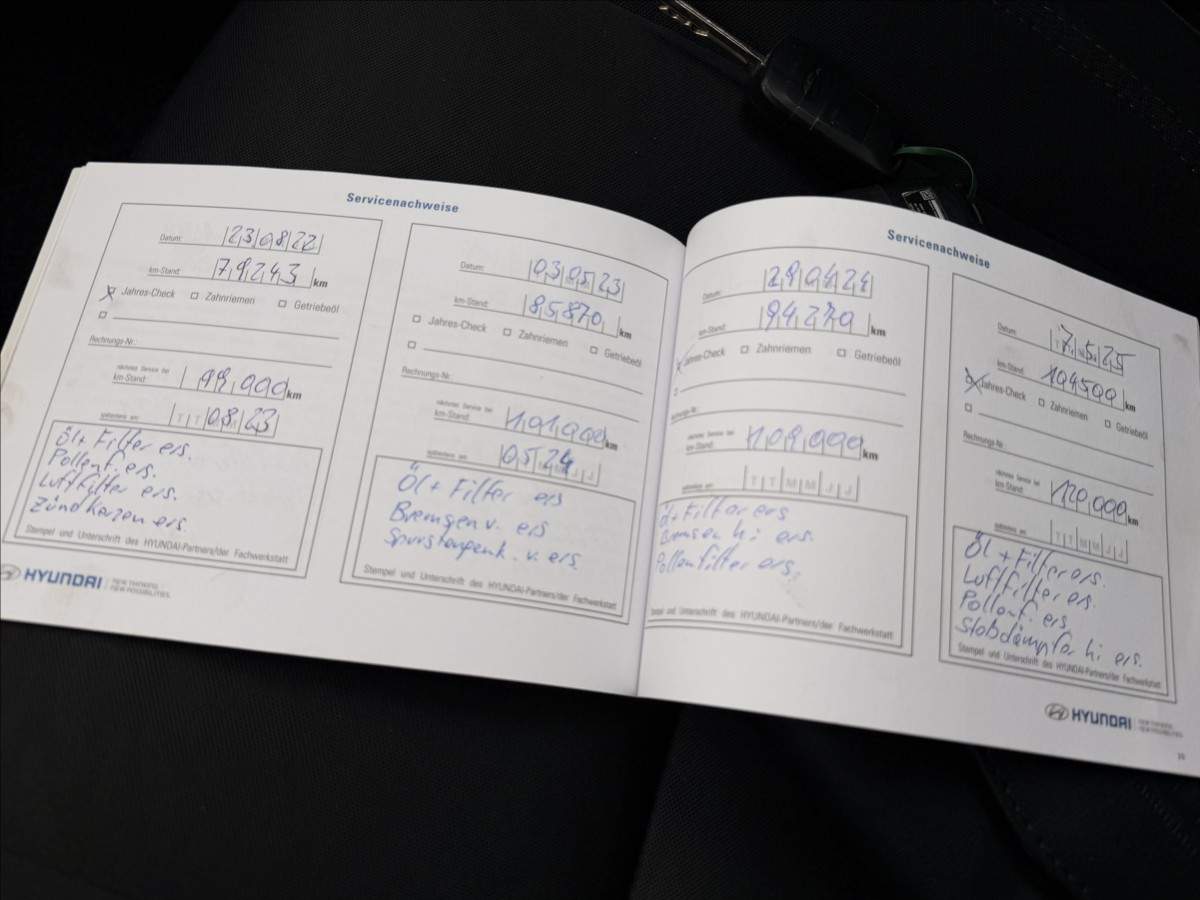 Servicenachweise
Datum: 23 08 22
km-Stand: 79243 km
Jahres-Check Zahnriemen Getriebeöl
Rechnungs-Nr.:
nächster Service bei
km-Stand: 99.000 km
spätestens am: T T 08 23
Öl + Filter ers.
Pollenf. ers.
Luftfilter ers.
Zündkerzen ers.
Stempel und Unterschrift des HYUNDAI-Partners/der Fachwerkstatt
HYUNDAI NEW THINKING. NEW POSSIBILITIES.
Datum: 03 05 23
km-Stand: 85870 km
Jahres-Check Zahnriemen Getriebeöl
Rechnungs-Nr.:
nächster Service bei
km-Stand: 101.000 km
spätestens am: 05 24 J J
Öl + Filter ers
Bremsen v. ers
Spurstangenk. v. ers.
Stempel und Unterschrift des HYUNDAI-Partners/der Fachwerkstatt
Servicenachweise
Datum: 29 04 24
km-Stand: 94270 km
Jahres-Check Zahnriemen Getriebeöl
nungs-Nr.:
nächster Service bei
km-Stand: 109.000 km
spätestens am: T T M M J J
Öl + Filter ers
Bremsen hi ers.
Pollenfilter ers.
Stempel und Unterschrift des HYUNDAI-Partners/der Fachwerkstatt
Datum: 7.5.25
km-Stand: 104500 km
Jahres-Check Zahnriemen Getriebeöl
Rechnungs-Nr.:
nächster Service bei
km-Stand: 120.000 km
spätestens am: T T M M J J
Öl + Filter ers.
Luftfilter ers.
Pollenf. ers
Stoßdämpfer hi ers.
Stempel und Unterschrift des HYUNDAI-Partners/der Fachwerkstatt
HYUNDAI NEW THINKING. NEW POSSIBILITIES.